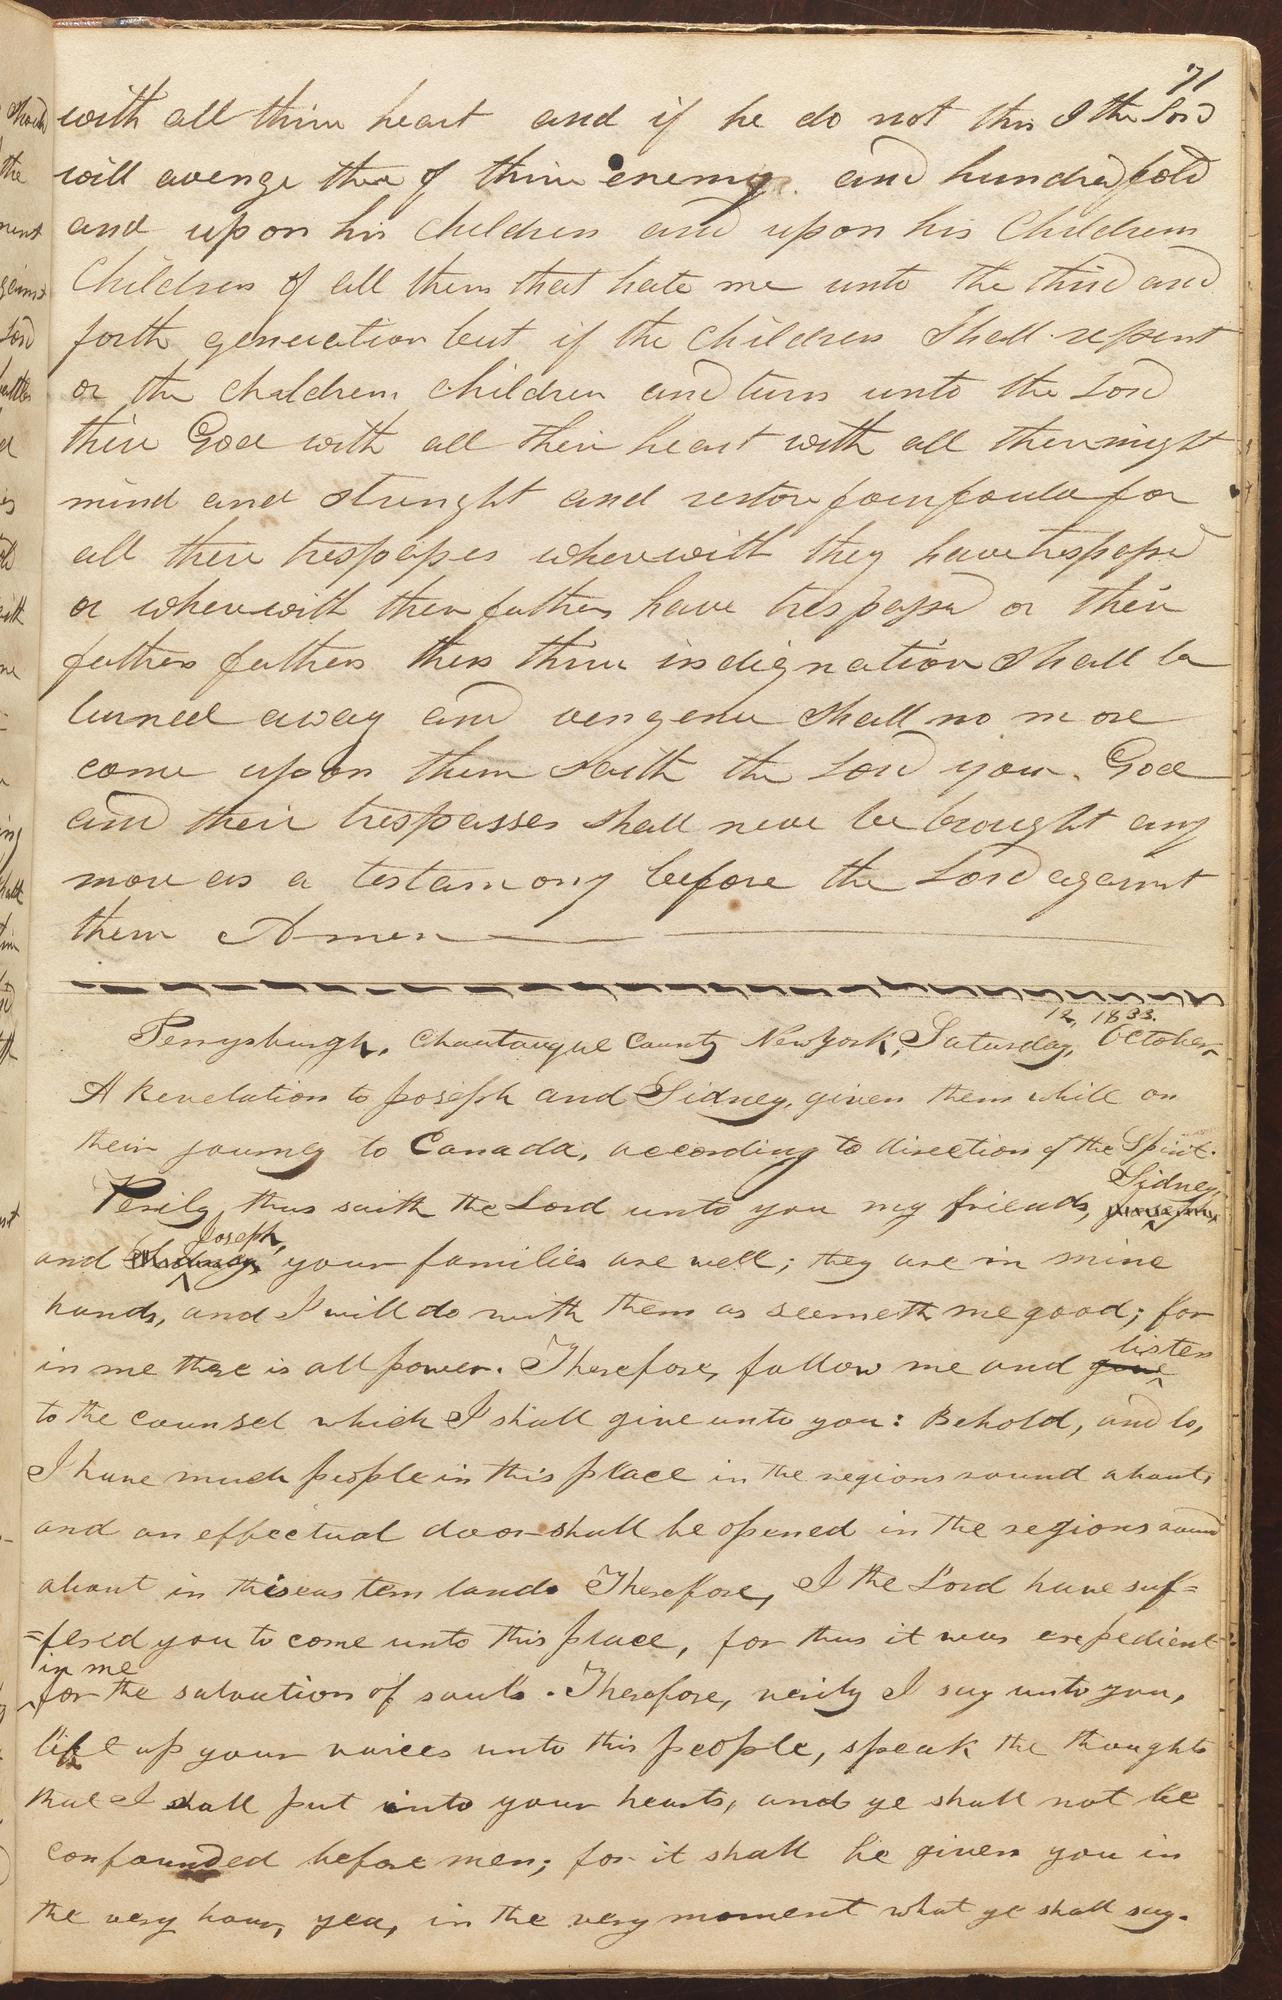 71
with all thine heart and if he do not this I the Lord
will avenge thee of thine enemy and hundredfold
and upon his children and upon his Childrens
Children of all them that hate me unto the third and
forth generation but if the children Shall repent
or the childrens children and turn unto the Lord
thire God with all their heart with all their might
mind and strenght and restore fourfould for
all there trespasses wherewith they have trespased
or wherewith their fathers have trespassed or their
fathers fathers then thine indignation shall be
turned away and vengence shall no more
come upon them saith the Lord your God
and their trespasses shall never be brought any
more as a testamony before the Lord against
them Amen
12, 1833.
Perrysburgh, Chautauque County New York, Saturday, October
A Revelation to Joseph and Sidney, given them while on
their journey to Canada, according to direction of the Spirit.
Sidney,
Verily, thus saith the Lord unto you my friends, Joseph,
Joseph,
and Sidney, your families are well; they are in mine
hands, and I will do with them as seemeth me good; for
in me there is all power. Therefore, follow me and give
listen
to the counsel which I shall give unto you: Behold, and lo,
I have much people in this place in the regions round about,
and an effectual door shall be opened in the regions round
about in this eastern land. Therefore, I the Lord have suf=
=fered you to come unto this place, for thus it was expedient
in me
for the salvation of souls. Therefore, verily I say unto you,
lift up your voices unto this people, speak the thoughts
that I shall put into your hearts, and ye shall not be
confounded before men; for it shall be given you in
the very hour, yea, in the very moment what ye shall say.